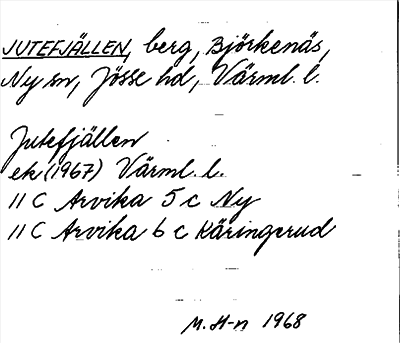 JUTEFJÄLLEN, berg, Björkenäs,
Ny sn, Jösse hd, Värml. l.
Jutefjällen
ek (1967) Värml. l.
11 C Arvika 5 c Ny
11 C Arvika 6 c Käringerud
M. H-n 1968